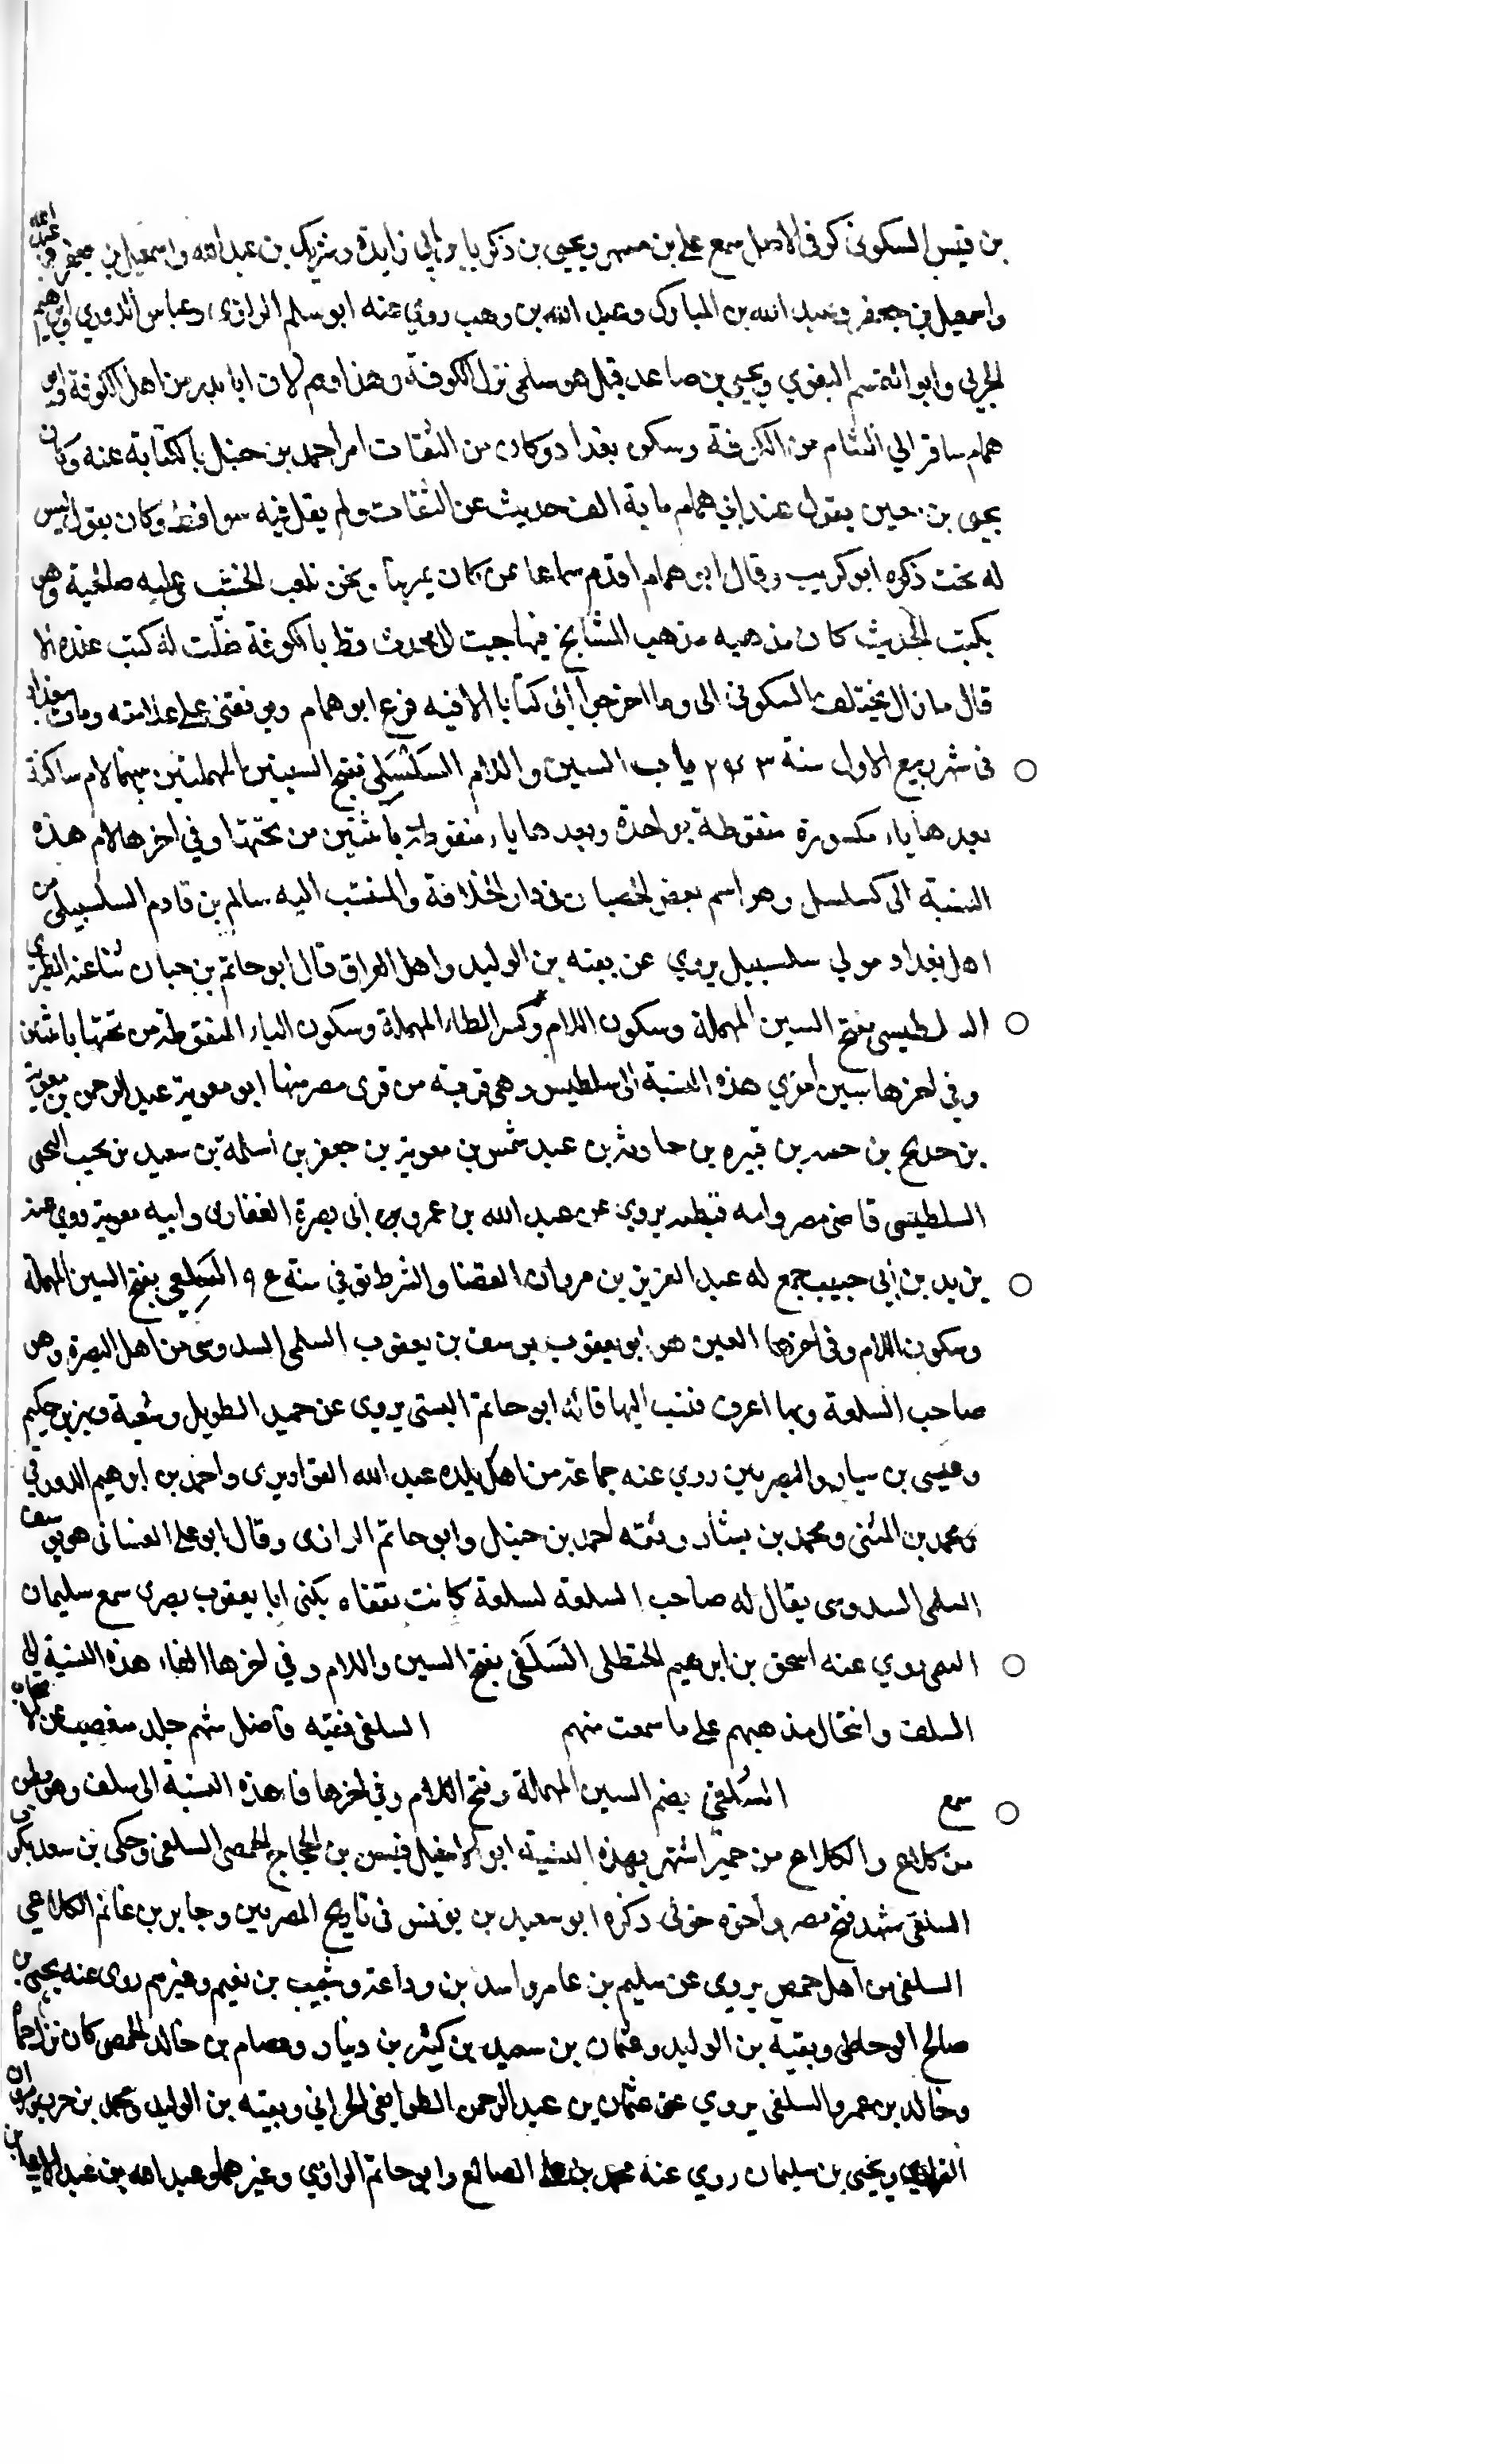 بن قيس السكوني كوفي الاصل سمع علي بن مسهر ويحيى بن زكريا بن ابي زايدة وشريك بن عبد الله واسمعيل بن جعفر
واسمعيل بن جعفر وعبد الله بن المبارك وعبد الله بن وهب روي عنه ابو سلم الرازي وعباس الدوري وابرهيم
الحربي وابو القسم البغوي ويحيى بن صاعد قيل هو سلمى نزل الكوفة وهذا وهم لان ابا بدر من اهل الكوفة وابو
همام سافر الي الشام من الكوفة وسكن بغداد وكان من الثقات امر احمد بن حنبل بالكتابة عنه وكان
يحيى بن معين يقول عند ابي همام ماية الف حديث عن الثقات ولم يقل فيه سوا قط وكان يقول ليس
له بخت ذكره ابو كريب وقال ابو همام اقدم سماعا ممن كان يمر بنا ونحن نلعب الخشب عليه صلحية وهو
يكتب الحديث كان مذهبه مذهب المشايخ فيها جيت الى محدث قط بالكوفة ضلت له كتب عنده الا
قال ما زال يختلف السكوني الى وما اخرجوا الي كتابا الا فيه فرع ابو همام ومات ببغداد
في شهر ربيع الاول سنة ٢٤٣ باب السين واللام السلسبيلي بفتح السينين المهملتين بينهما لام ساكنة
بعدها باء مكسورة منقوطة بواحدة وبعدها ياء منقوطة باثنتين من تحتها وفي اخرها لام هذه
النسبة الى سلسبيل وهو اسم بعض الخصيان في دار الخلافة والمنتسب اليه سالم بن قادم السلسبيلي من
اهل بغداد مولي سلسبيل يروي عن بقيه بن الوليد واهل العراق قال ابو حاتم بن حبان ثنا عنه الطبري
السلطيسي بفتح السين المهملة وسكون اللام وكسر الطاء المهملة وسكون الياء المنقوطة من تحتها باثنتين
وفي اخرها سين اخري هذه النسبة الى سلطيس وهي قرية من قرى مصر منها ابو معوية عبد الرحمن بن معوية
بن حديج بن حعمه بن قيره بن حارثه بن عبد شمس بن معوية بن جعفر بن اسامة بن سعيد بن تجيب التجيبي
السلطيسي قاضي مصر وامه قبطيه يروي عن عبد الله بن عمرو بن ابي بصرة الغفاري وابيه معوية روي عنه
يزيد بن ابي حبيب جمع له عبد العزيز بن مروان القضا والشرط توفي سنة ٩٤ السلعي بفتح السين المهملة
وسكون اللام وفي اخرها العين هو ابو يعقوب يوسف بن يعقوب السلمي السدوسي من اهل البصرة وهو
صاحب السلعة وبها اعرف فنسب اليها قاله ابو حاتم البستي يروى عن حميد الطويل وشعبة وبهز بن حكيم
وعيسى بن سيار والبصريين روي عنه جماعة من اهل بلده عبيد الله القواريرى واحمد بن ابرهيم الدورقي
ومحمد بن المثنى ومحمد بن بشار وثقه احمد بن حنبل وابو حاتم الرازى وقال ابو علي الغساني هو يوسف
السلمي السدوسي يقال له صاحب السلعه لسلعة كانت بقفاه يكنى ابا يعقوب بصرى سمع سليمان
التيمي روي عنه اسحق بن ابرهيم الحنظلي السلفي بفتح السين واللام وفي اخرها الفاء هذه النسبة الى
السلف وانتحال مذهبهم على ما سمعت منهم السلفي فقيه فاضل شهم جلد
سمع السلفي بضم السين المهملة وفتح اللام وفي اخرها فاء هذه النسبة الى سلف وهو بطن
من كلاع والكلاع من حمير اشتهر بهذه النسبة ابو قيس بن الحجاج الحمصي السلفي وحكى بن سعد
السلفي شهد فتح مصر واخوه خولي ذكره ابو سعيد بن يونس في تاريخ المصريين وجابر بن غانم الكلاعي
السلفي من اهل حمص يروى عن سليم بن عامر واسد بن وداعة وشبيب بن نعيم وغيرهم روى عنه يحيى بن
صالح الوحاظي وبقية بن الوليد وعثمان بن سعيد بن كثير بن دينار وعصام بن خالد الحمصي كان نزل حماة
وخالد بن عمرو السلفي يروي عن عثمان بن عبد الرحمن الطرايفي الحراني وبقيه بن الوليد ومحمد بن حرب ومروان
الفزاري ويحيى بن سليمان روي عنه محمد بن علي الصائغ وابو حاتم الرازي وغيرهما وعبد الله بن عبد